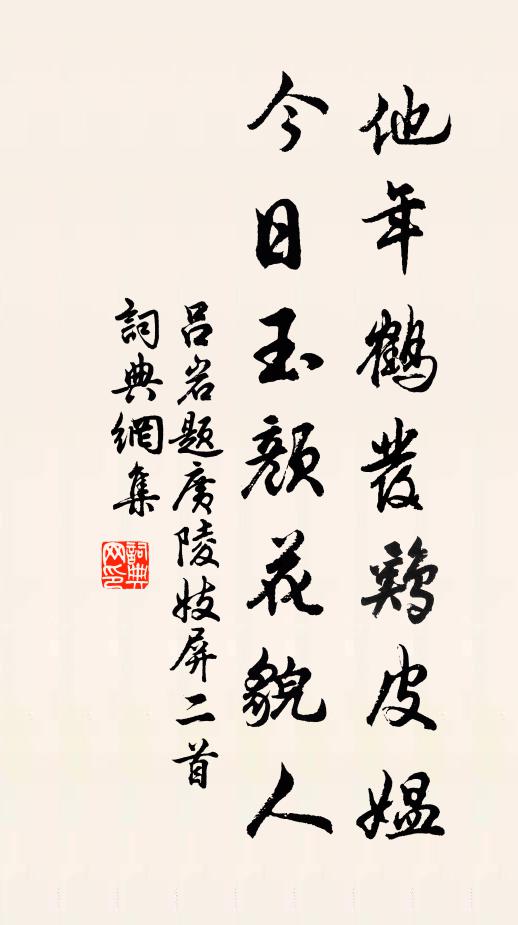 他年鶴發鷄皮媼
今日玉顏花貌人
吕岩題廣陵妓屏二首
詞典網集
詞典网印